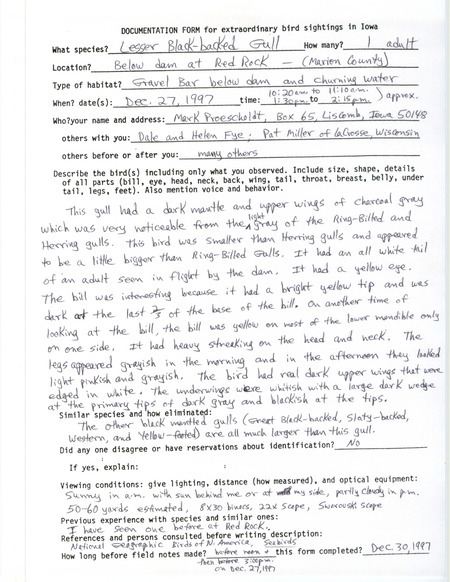 DOCUMENTATION FORM for extraordinary bird sightings in Iowa
What species? Lesser Black-backed Gull How many? 1 adult
Location? Below dam at Red Rock — (Marion County)
Type of habitat? Gravel Bar below dam and churning water
When? date(s): Dec. 27, 1997 time: 10:20am to 11:10a.m. 1:30pm to 2:15p.m. ) approx.
Who?your name and address: Mark Proescholdt, Box 65, Liscomb, Iowa 50148
others with you: Dale and Helen Fye; Pat Miller of LaCrosse, Wisconsin
others before or after you: many others
Describe the bird(s) including only what you observed. Include size, shape, details
of all parts (bill, eye, head, neck, back, wing, tail, throat, breast, belly, under
tail, legs, feet). Also mention voice and behavior.
This gull had a dark mantle and upper wings of charcoal gray
which was very noticeable from the light gray of the Ring-Billed and
Herring gulls. This bird was smaller than Herring gulls and appeared
to be a little bigger than Ring-Billed Gulls. It had an all white tail
of an adult seen in flight by the dam. It had a yellow eye.
The bill was interesting because it had a bright yellow tip and was
dark at the last ⅔ of the base of the bill. On another time of
looking at the bill, the bill was yellow on most of the lower mandible only
on one side. It had heavy streaking on the head and neck. The
legs appeared grayish in the morning and in the afternoon they looked
light pinkish and grayish. The bird had real dark upper wings that were
edged in white. The underwings were whitish with a large dark wedge
at the primary tips of dark gray and blackish at the tips.
Similar species and how eliminated:
The other black mantled gulls (Great Black-backed, Slaty-backed,
Western, and Yellow-footed) are all much larger than this gull.
Did any one disagree or have reservations about identification? No
If yes, explain:
Viewing conditions: give lighting, distance (how measured), and optical equipment:
Sunny in a.m. with sun behind me or at my side, partly cloudy in p.m.
50-60 yards estimated, 8x30 binocs, 22x scope, Swarovski scope
Previous experience with species and similar ones:
I have seen one before at Red Rock.
References and persons consulted before writing description:
National Geographic Birds of N. America, Seabirds
How long before field notes made? before noon + this form completed? Dec. 30, 1997
then before 3:00p.m.
on Dec. 27, 1997